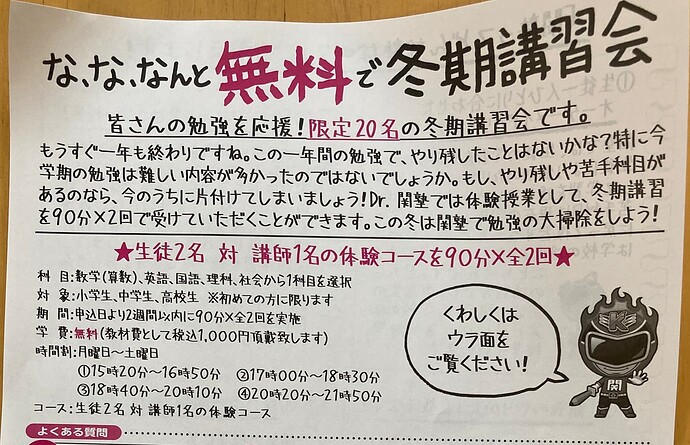 な、な、なんと無料で冬期講習会
皆さんの勉強を応援！限定20名の冬期講習会です。
もうすぐ一年も終わりですね。この一年間の勉強で、やり残したことはないかな？特に今
学期の勉強は難しい内容が多かったのではないでしょうか。もし、やり残しや苦手科目が
あるのなら、今のうちに片付けてしまいましょう！Dr.関塾では体験授業として、冬期講習
を90分×2回で受けていただくことができます。この冬は関塾で勉強の大掃除をしよう！
★生徒2名 対 講師1名の体験コースを90分×全2回★
科 目：数学(算数)、英語、国語、理科、社会から1科目を選択
対 象：小学生、中学生、高校生 ※初めての方に限ります
期 間：申込日より2週間以内に90分×全2回を実施
学 費：無料(教材費として税込1,000円頂戴致します)
時間割：月曜日〜土曜日
①15時20分〜16時50分 ②17時00分〜18時30分
③18時40分〜20時10分 ④20時20分〜21時50分
コース：生徒2名 対 講師1名の体験コース
くわしくは
ウラ面を
ご覧ください！
K
関
よくある質問